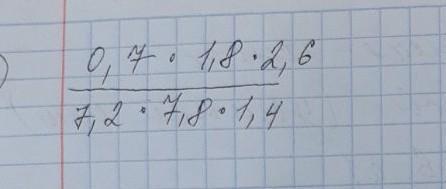 ) 0,7 · 1,8 · 2,6
7,2 · 7,8 · 1,4